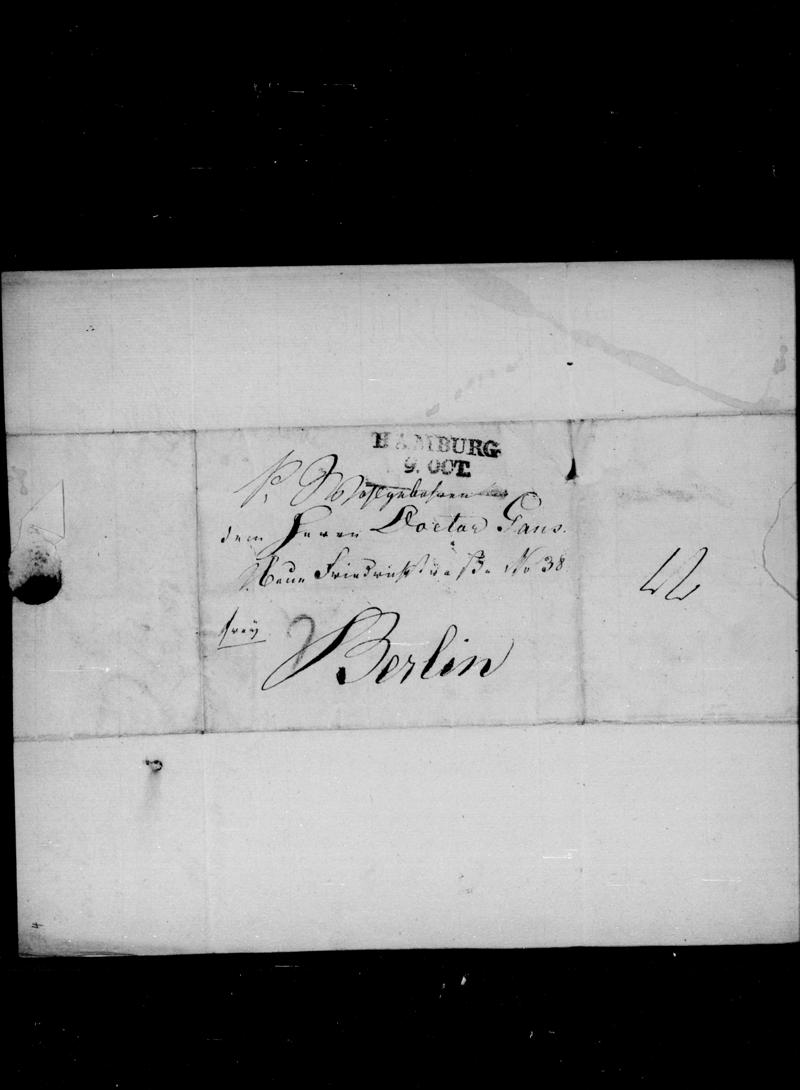 HAMBURG
9. OCT.
Sr. Wohlgebohren
dem Herrn Doctor Gans.
Neue Friedrichstraße No 38
frey
Berlin